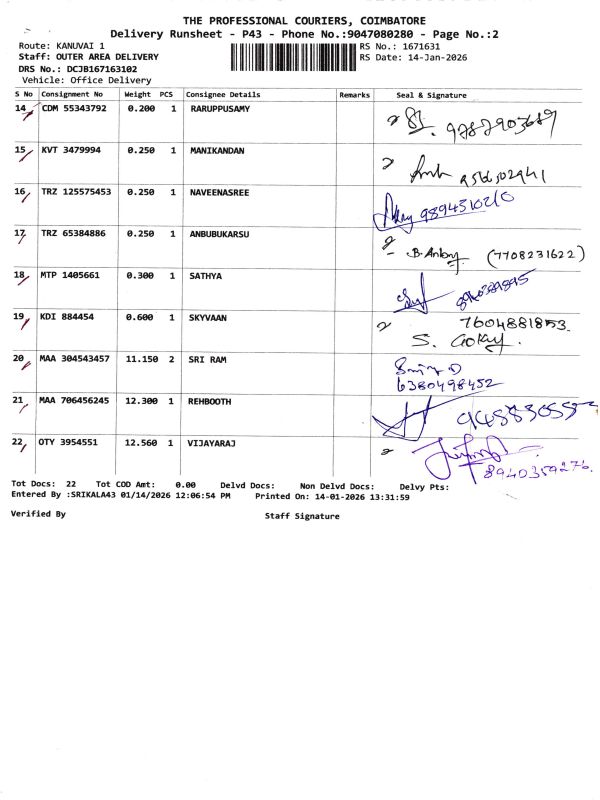 THE PROFESSIONAL COURIERS, COIMBATORE
Delivery Runsheet - P43 - Phone No.:9047080280 - Page No.:2
Route: KANUVAI 1
RS No.: 1671631
Staff: OUTER AREA DELIVERY
RS Date: 14-Jan-2026
DRS No.: DCJB167163102
Vehicle: Office Delivery
S No Consignment No Weight PCS Consignee Details Remarks Seal & Signature
14 CDM 55343792 0.200 1 RARUPPUSAMY
15 KVT 3479994 0.250 1 MANIKANDAN
16 TRZ 125575453 0.250 1 NAVEENASREE 9894310210
17 TRZ 65384886 0.250 1 ANBUBUKARSU B. Anbu (7708231622)
18 MTP 1405661 0.300 1 SATHYA
19 KDI 884454 0.600 1 SKYVAAN 7604881853.
S. Gokay.
20 MAA 304543457 11.150 2 SRI RAM
6380498452
21 MAA 706456245 12.300 1 REHBOOTH
22 OTY 3954551 12.560 1 VIJAYARAJ
8940359276.
Tot Docs: 22 Tot COD Amt: 0.00 Delvd Docs: Non Delvd Docs: Delvy Pts:
Entered By :SRIKALA43 01/14/2026 12:06:54 PM Printed On: 14-01-2026 13:31:59
Verified By Staff Signature